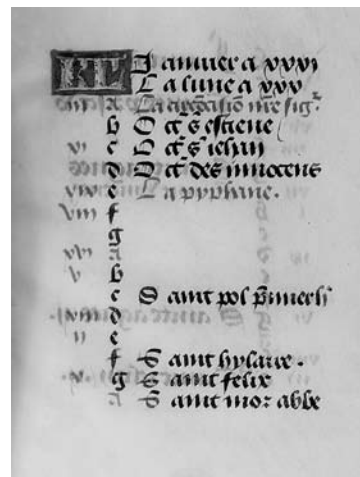 KL Januier a xxxi
La lune a xxx
iii A La circoncisio nre sig
b Oct s estiene
xi c Oct s iehan
d Oct des innocens
xix e La pyphane.
viii f
g
xvi A
v b
c Saint pol p̃mier h
xiii d
ii e
f Saint hylaire.
x g Saint felix
A Saint mor abbe